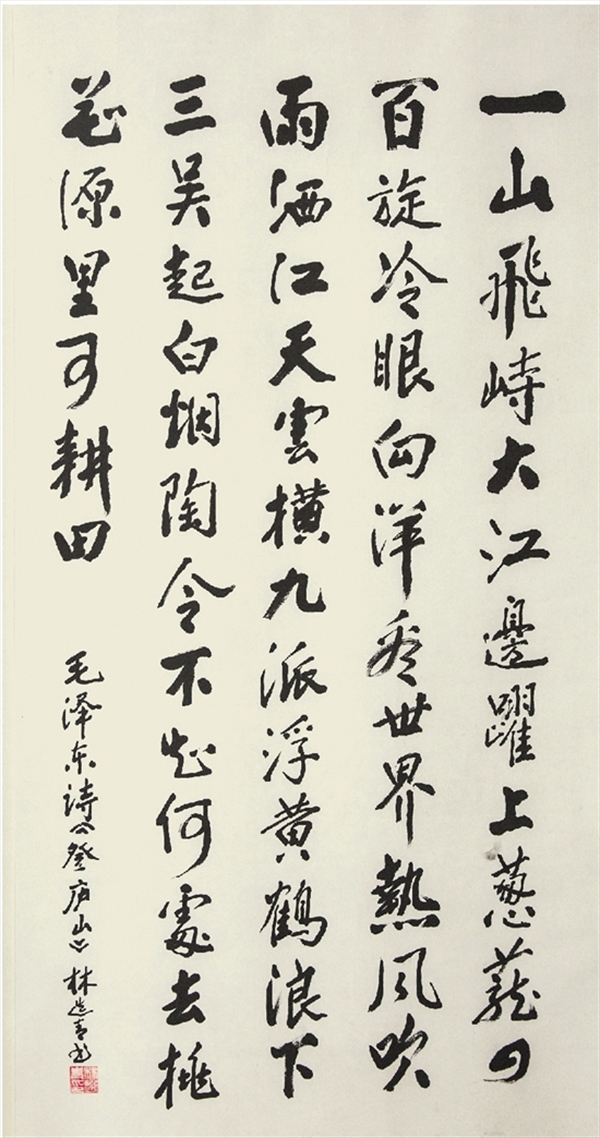 一山飛峙大江邊躍上葱蘢四
百旋冷眼向洋看世界熱風吹
雨洒江天雲橫九派浮黄鶴浪下
三吴起白烟陶令不知何處去桃
花源里可耕田
毛泽东诗《登庐山》林造青书